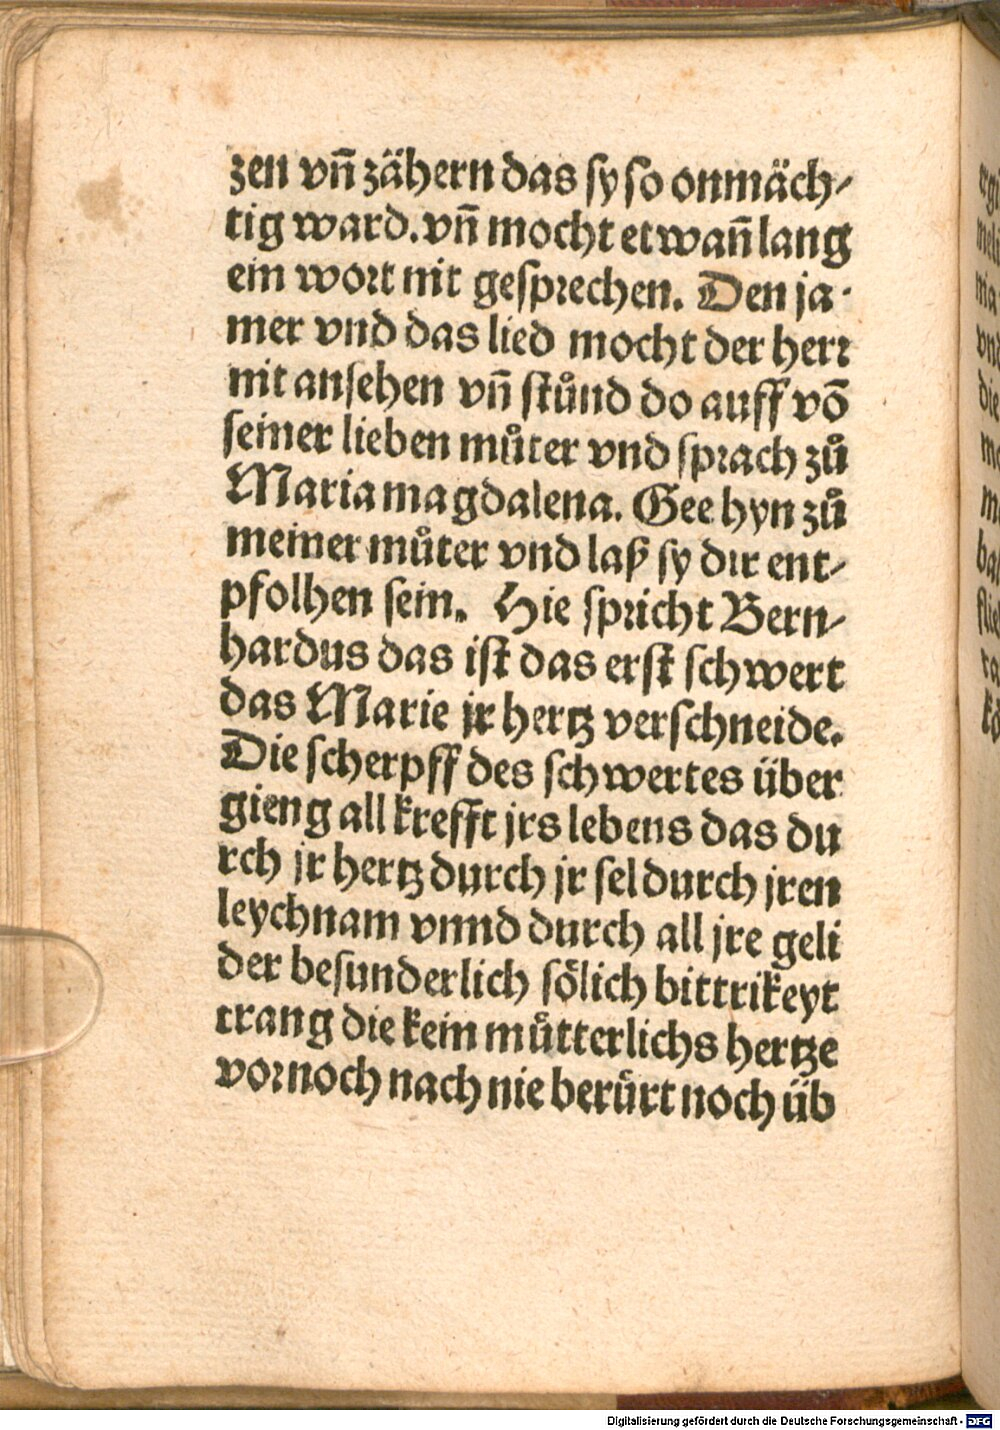 zen vn̄ zähern das sy so onmäch-
tig ward. vn̄ mocht etwan̄ lang
ein wort nit gesprechen. Den ja-
mer vnd das lied mocht der herr
nit ansehen vn̄ stůnd do auff võ
seiner lieben můter vnd sprach zů
Maria magdalena. Gee hyn zů
meiner můter vnd laß sy dir ent-
pfolhen sein. Hie spricht Bern-
hardus das ist das erst schwert
das Marie jr hertz verschneide.
Die scherpff des schwertes über
gieng all krefft jrs lebens das du
rch jr hertz durch jr sel durch jren
leychnam vnnd durch all jre geli
der besunderlich sölich bittrikeyt
trang die kein můtterlichs hertze
vor noch nach nie berürt noch üb
Digitalisierung gefördert durch die Deutsche Forschungsgemeinschaft - DFG